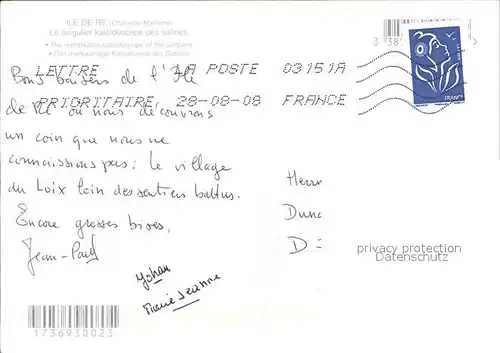 ILE DE RE (Charente-Maritime)
Le singulier kaléidoscope des salines.
LETTRE LA POSTE 03151A
PRIORITAIRE, 28-08-08 FRANCE
Bons baisers de l'Ile
de Ré où nous découvrons
un coin que nous ne
connaissions pas : le village
du Loix loin des sentiers battus.
Encore grosses bises,
Jean-Paul
Yohan
Marie Jeanne
Herr
Dunc
D=
privacy protection
Datenschutz
FRANCE
1736930023